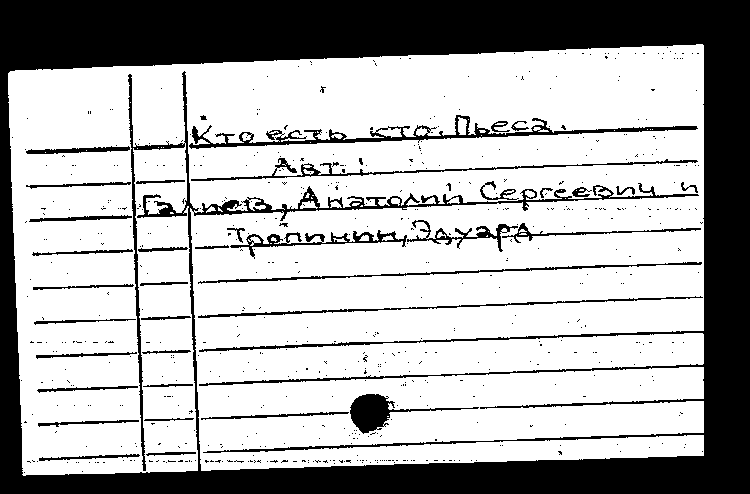 Кто есть кто. Пьеса.
Авт.:
Галиев, Анатолий Сергеевич и
Тропинин, Эдуард